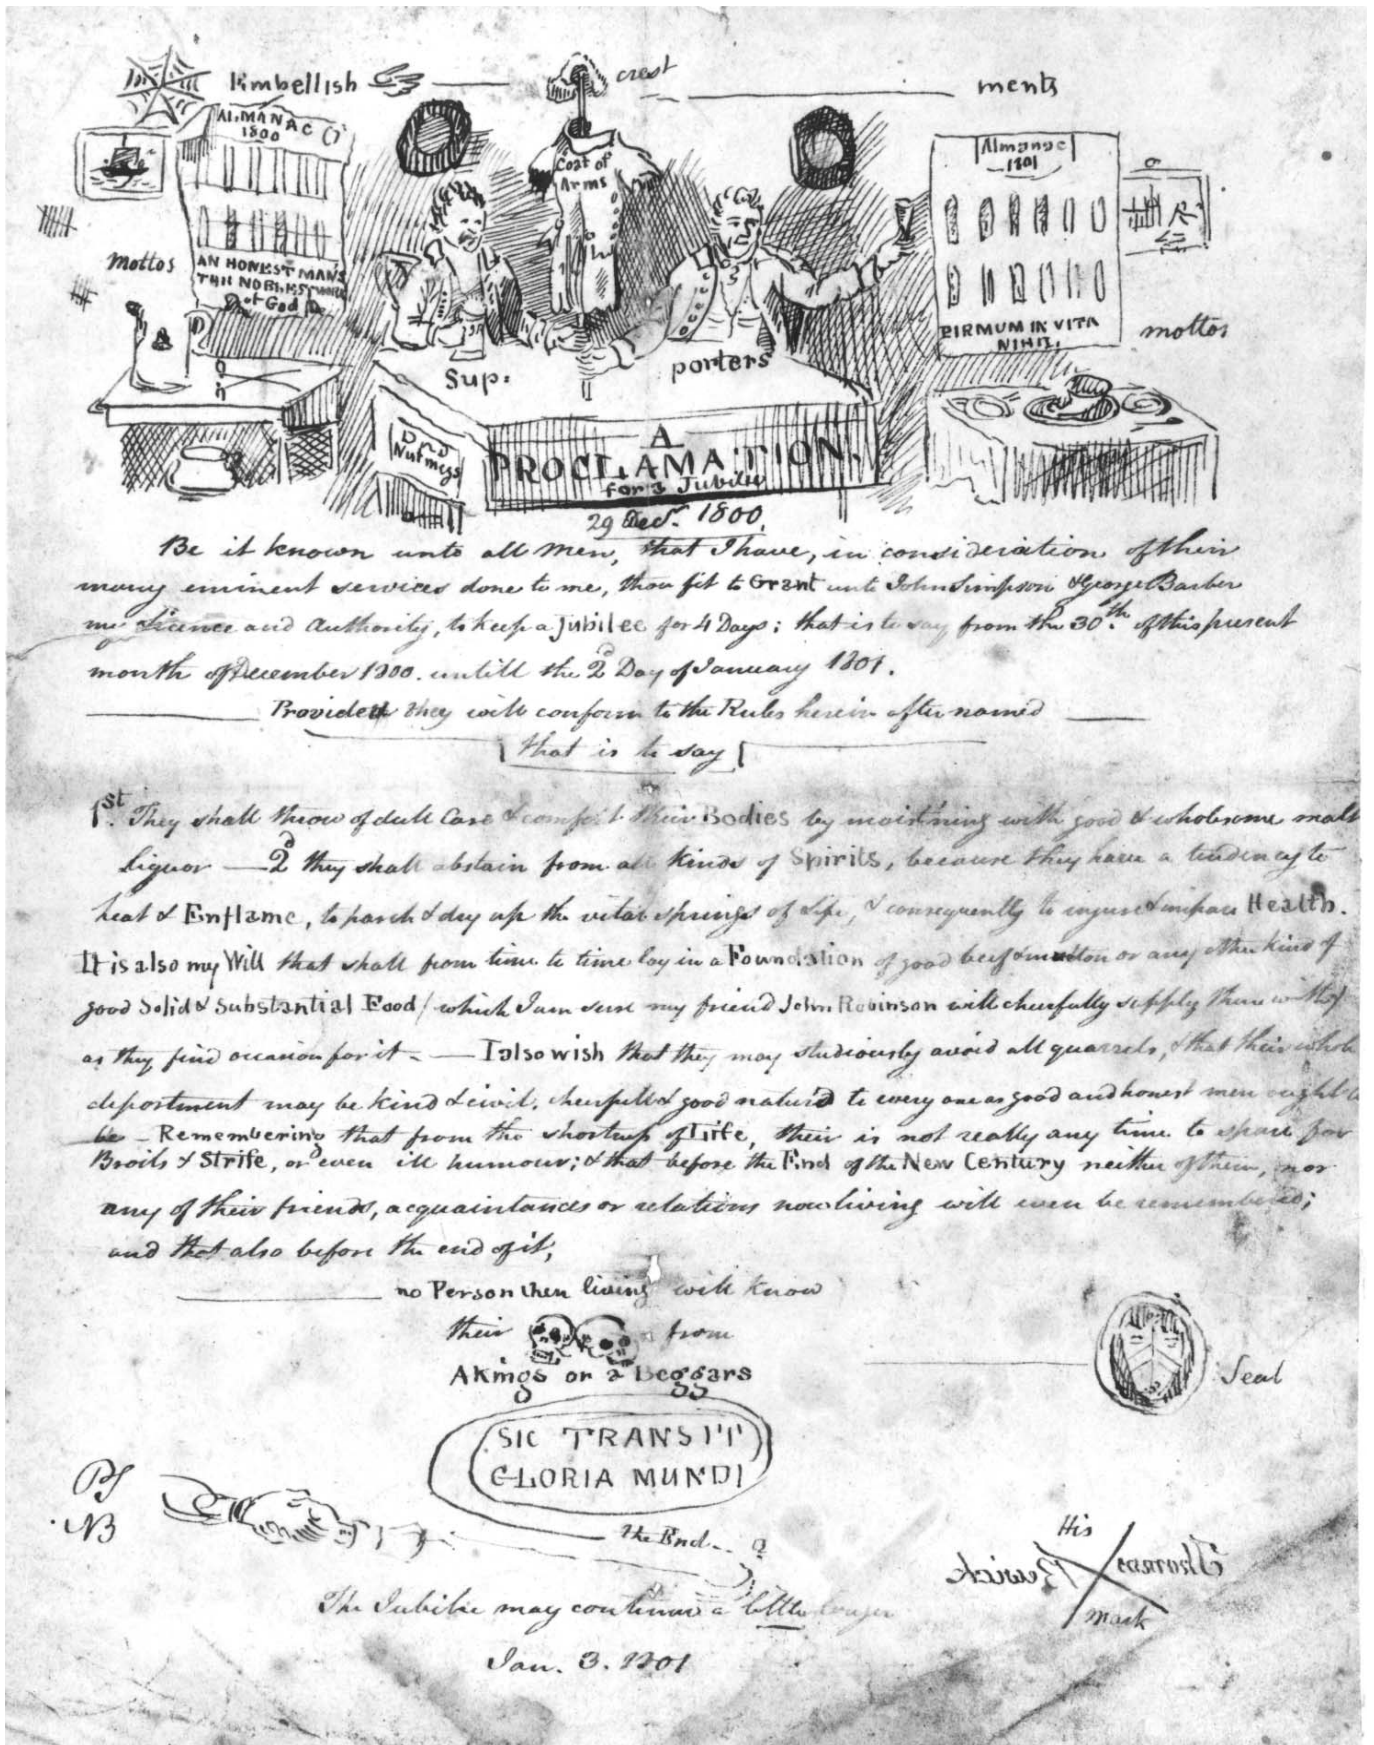 Embellish
crest
ments
ALMANAC
1800
Coat of
Arms
Almanac
1801
mottos
AN HONEST MAN'S
THE NOBLEST WORK
of God
FIRMUM IN VITA
NIHIL.
mottos
Sup:
porters
Nutmegs
A
PROCLAMATION.
for a Jubilee
29 Decr. 1800.
Be it known unto all men, that I have, in consideration of their
many eminent services done to me, thou fit to Grant unto John Simpson & George Barber
my Licence and Authority, to keep a Jubilee for 4 Days; that is to say from the 30th. of this present
month of December 1800. untill the 2d Day of January 1801.
Provided they will conform to the Rules herein after named
that is to say
1st. They shall throw of dull Care & comfort their Bodies by moistning with good & wholesome malt
Liquor — 2d they shall abstain from all kinds of Spirits, because they have a tendency to
heat & Enflame, to parch & dry up the vital springs of Life, & consequently to injure & impair Health.
It is also my Will that shall from time to time lay in a Foundation of good beef & mutton or any other kind of
good Solid & Substantial Food / which I am sure my friend John Robinson will cheerfully supply them with /
as they find occasion for it - — I also wish that they may studiously avoid all quarrels, & that their whole
deportment may be kind & civil, cheerfull & good natur'd to every one as good and honest men ought to
be - Remembering that from the shortness of Life, their is not really any time to spare for
Broils & Strife, or even ill humour; & that before the End of the New Century neither of them, nor
any of their friends, acquaintances or relations now living will even be remembered;
and that also before the end of it,
no Person then living will know
their from
A Kings or a Beggars
Seal
SIC TRANSIT
GLORIA MUNDI
PS
NB
the End.
His
Thomas Bewick
mark
The Jubilee may continue a little longer
Jan. 3. 1801